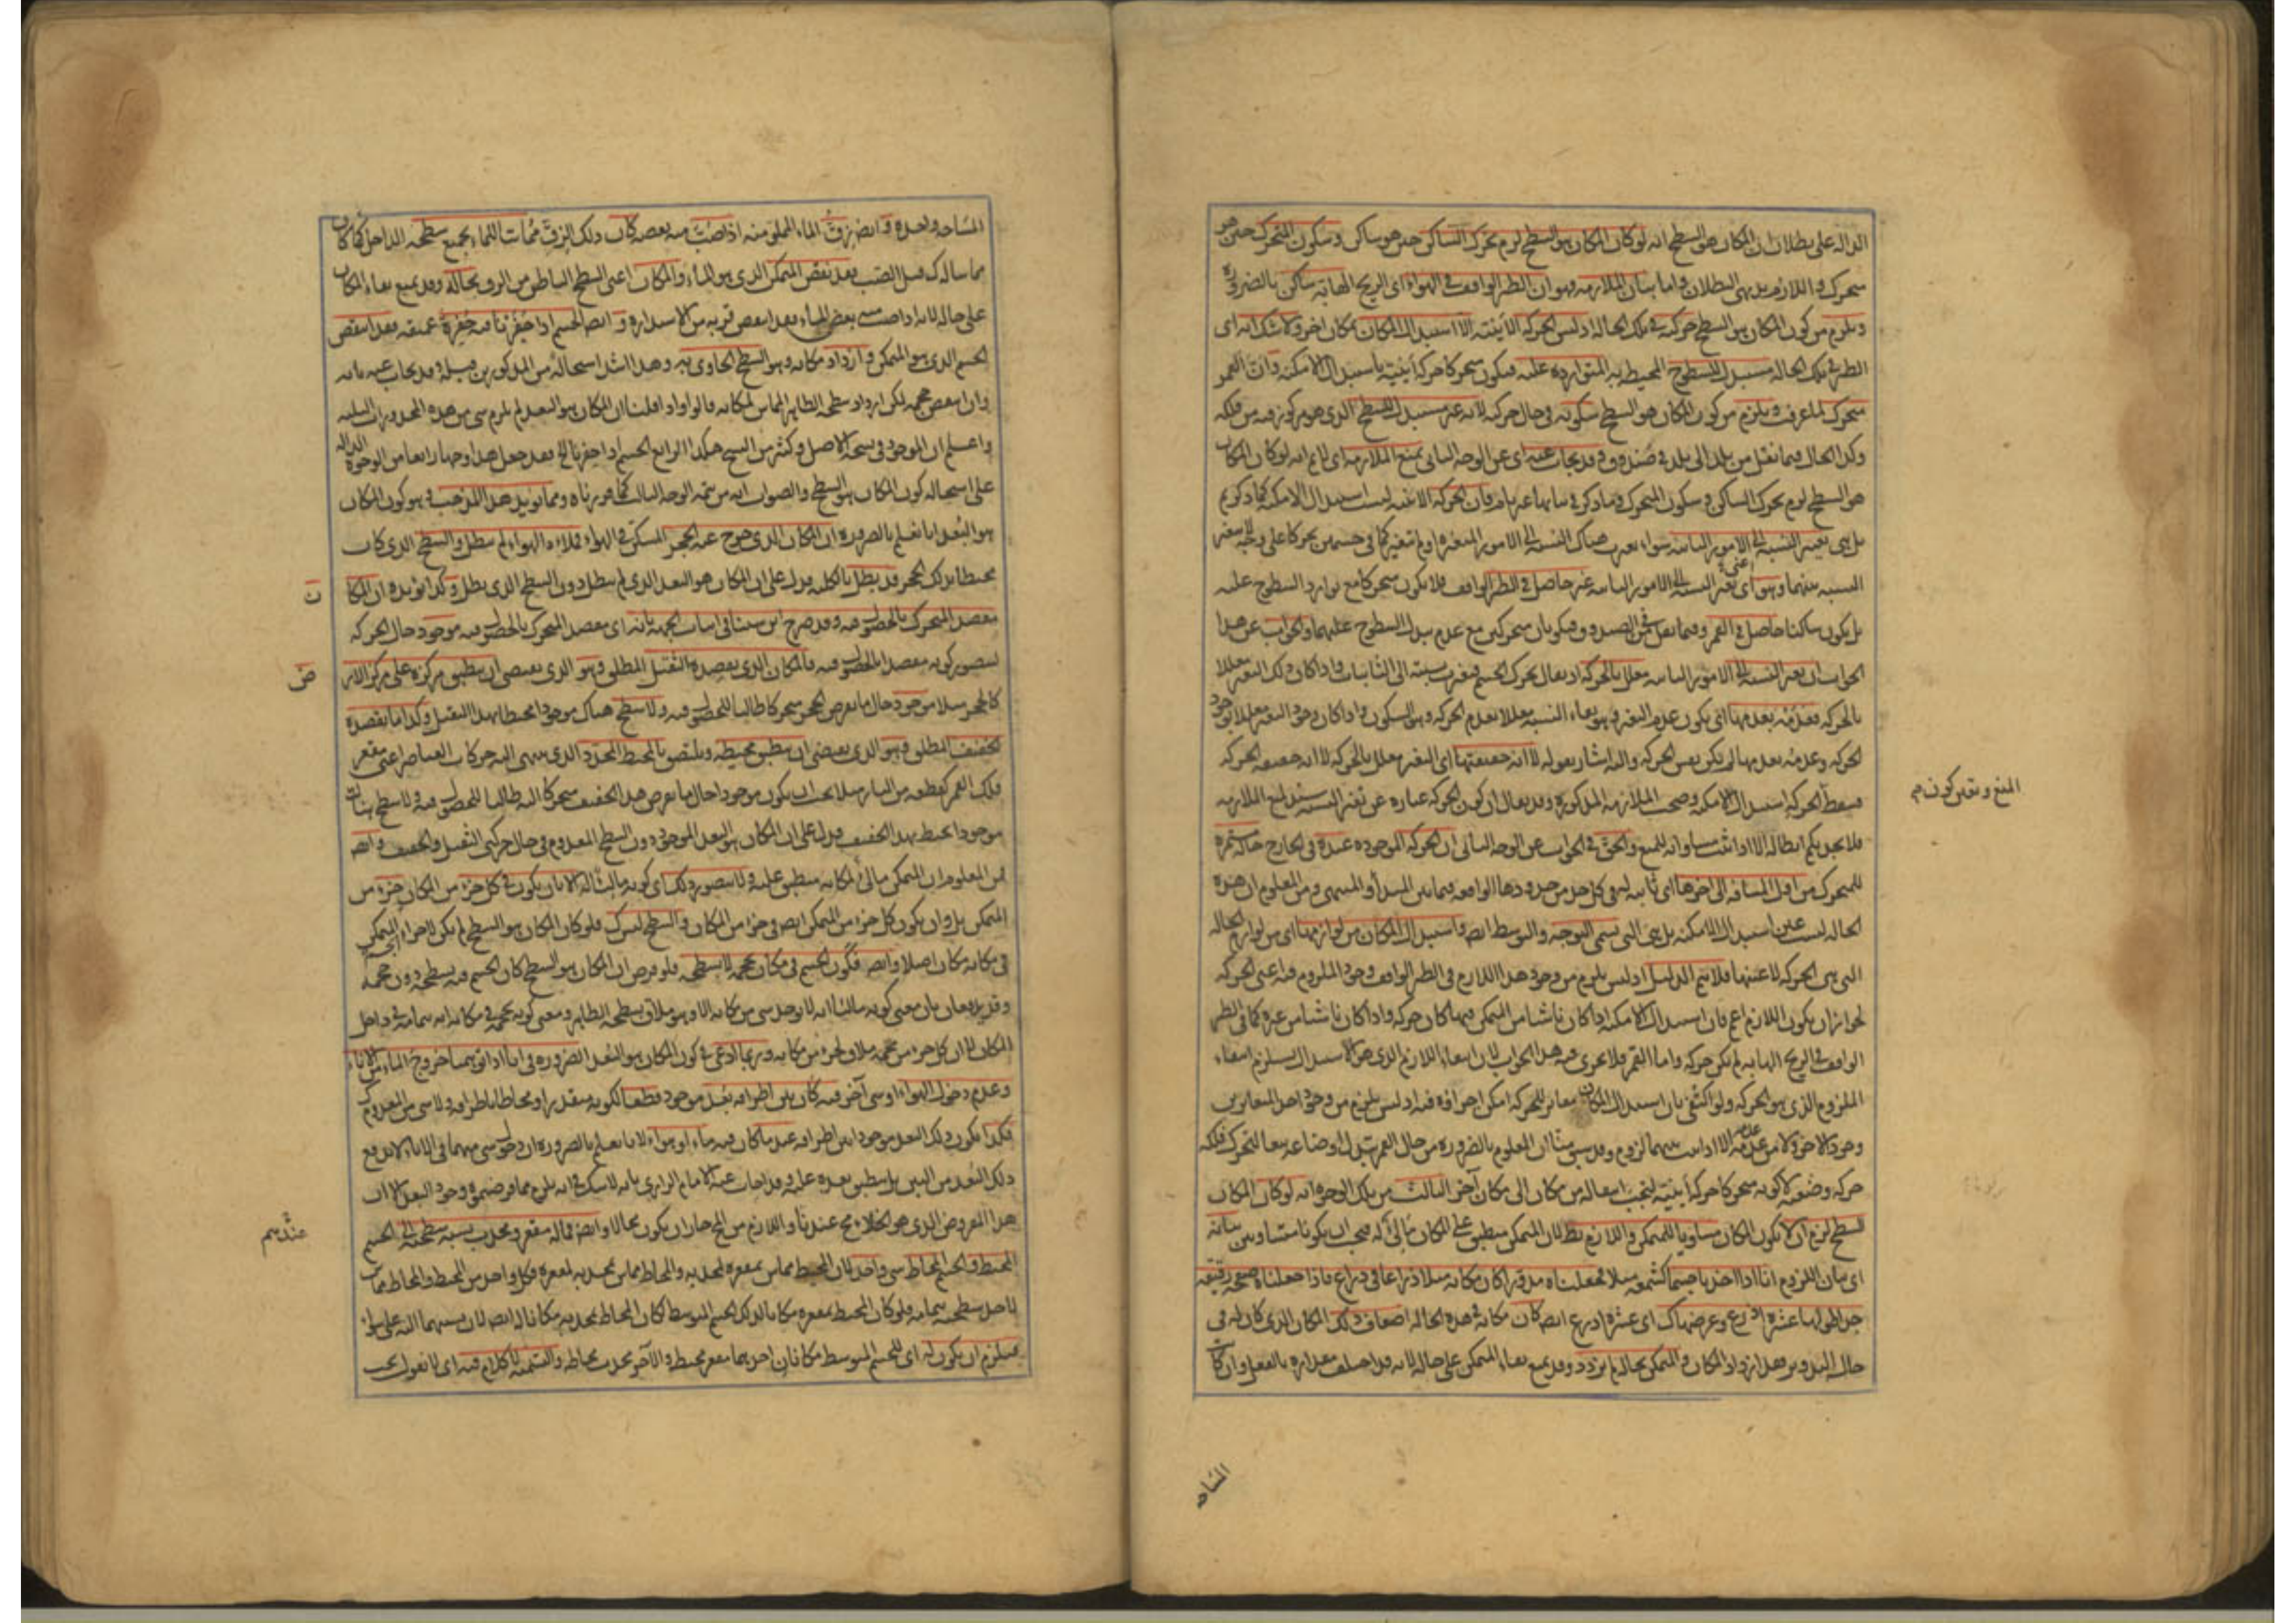 الدالة على بطلان ان المكان هو السطح انه لو كان المكان هو السطح لزم تحرك الساكن حين هو ساكن وسكون المتحرك حين هو
متحرك واللازم بديهي البطلان واما بيان الملازمة فهو ان الطير الواقف في الهواء اي الريح الهابة ساكن بالضرورة
ويلزم من كون المكان هو السطح حركته في تلك الحالة اذ ليس الحركة الاينية الا استبدال المكان بمكان آخر ولا شك انه اي
الطير في تلك الحالة مستبدل للسطوح المحيطة به المتواردة عليه فيكون متحركا حركة اينية باستبدال الامكنة وان القمر
متحرك لما عرفت ويلزم من كون المكان هو السطح سكونه في حال حركته لانه غير مستبدل للسطح الذي هو مركوز فيه من فلكه
وكذا الحال فيما نقل من بلد الى بلد في صندوق وقد يجاب عنه اي عن الوجه الثاني بمنع الملازمة اي لا نم انه لو كان المكان
هو السطح لزم تحرك الساكن وسكون المتحرك وما ذكر في بيانها غير تام فان الحركة الاينية ليست استبدال الامكنة كما ذكرتم
بل هي تغير النسبة الى الامور الثابتة سواء تغيرت هناك النسبة الى الامور المتغيرة او لم تتغير كما في جسمين تحركا على وجه لم يتغير
النسبة بينهما وهو اعني تغير النسبة الى الامور الثابتة غير حاصل في الطير الواقف فلا يكون متحركا مع توارد السطوح عليه
بل يكون ساكنا حاصل في القمر وفيما نقل في الصندوق فيكونان متحركين مع عدم تبدل السطوح عليهما والجواب عن هذا
الجواب ان تغير النسبة الى الامور الثابتة معلل بالحركة اذ يقال تحرك الجسم فتغيرت نسبته الى الثابتات واذا كان ذلك التغير معللا
بالحركة فعدمه بعدمها اي يكون عدم التغير وهو بقاء النسبة معللا بعدم الحركة وهو السكون واذا كان وجود التغير معللا بوجود
الحركة وعدمه بعدمها لم يكن نفس الحركة واليه اشار بقوله لا انه حقيقتها اي التغير معلل بالحركة لا انه حقيقة الحركة
فيقع الحركة استبدال الامكنة وصحت الملازمة المذكورة وقد يقال ان كون الحركة عبارة عن تغير النسبة سند لمنع الملازمة
فلا يجديكم ابطاله الا اذا ثبت مساواته للمنع والحق في الجواب عن الوجه الثاني ان الحركة الموجودة عندة في الخارج حالة مستمرة
للمتحرك من اول المسافة الى آخرها اي ثابتة له في كل حد من حدودها الواقعة فيما بين المبدأ والمنتهى ومن المعلوم ان هذه
الحالة ليست عين استبدال الامكنة بل هي التي تسمى التوجه والتوسط ايضا واستبدال المكان من لوازمها اي من لوازم الحالة
التي هي الحركة لا عينها فلا يتم الدليل اذ ليس يلزم من وجود هذا اللازم في الطير الواقف وجود الملزوم فيه اعني الحركة
لجواز ان يكون اللازم اعم فان استبدال الامكنة اذا كان ناشئا من المتمكن فيها كان حركة واذا كان ناشئا من غيره كما في الطير
الواقف في الريح الهابة لم يكن حركة واما القمر فلا يجري فيه هذا الجواب لان انتفاء اللازم الذي هو الاستبدال يستلزم انتفاء
الملزوم الذي هو الحركة ولو اكتفى بان استبدال المكان مغاير للحركة امكن اجراؤه فيه اذ ليس يلزم من وجود احد المتغايرين
وجود الآخر ولا من عدمه عدمه الا اذا ثبت بينهما لزوم وقد سبق منا ان المعلوم بالضرورة من حال القمر تبدل اوضاعه تبعا لتحرك فلكه
حركة وضعية لا كونه متحركا حركة اينية ليجب انتقاله من مكان الى مكان آخر الثالث من تلك الوجوه انه لو كان المكان
السطح لزم ان لا يكون المكان مساويا للمتمكن واللازم بط لان المتمكن منطبق على المكان مالئ له فيجب ان يكونا متساويين بيانه
اي بيان اللزوم انا اذا اخذنا جسما كشمعة مثلا فجعلناه مدورة كان مكانه مثلا ذراعا في ذراع فاذا جعلناه صفيحة رقيقة
جدا طولها عشرة اذرع وعرضها كذلك اي عشرة اذرع ايضا كان مكانه في هذه الحالة اضعاف ذلك المكان الذي كان له في
حال التدوير فقد ازداد المكان والمتمكن بحاله لم يزدد وقد يمنع بقاء المتمكن على حاله لانه قد اختلف مقداره بالفعل وان كانت
المنع وتعين كون م
المساحة
المساحة واحدة وايضا زق الماء المملو منه اذا صب منه بعضه كان ذلك الزق مماسا للماء بجميع سطحه الداخل كما كان
مماسا له كذلك قبل الصب فقد نقص المتمكن الذي هو الماء والمكان اعني السطح الباطن من الزق بحاله وقد يمنع بقاء المكان
على حاله لانه اذا صب منه بعض الماء فقد انتقص قربه من الاستدارة وايضا الجسم اذا حفرنا فيه حفرة عميقة فقد انتقص
الجسم الذي هو المتمكن وازداد مكانه وهو السطح الحاوي به وهذا اشد استحالة من المذكورين قبيله وقد يجاب عنه بانه
وان انتقص حجمه لكن ازداد سطحه الظاهر المماس لمكانه قالوا واذا قلنا ان المكان هو البعد لم يلزم شيء من هذه المحذورات الثلثة
واعلم ان الموجود في نسخة الاصل وكثير من النسخ هكذا الرابع الجسم اذا حفرنا الخ فقد جعل هذا وجها رابعا من الوجوه الدالة
على استحالة كون المكان هو السطح والصواب انه من تتمة الوجه الثالث كما قررناه ومما يؤيد هذا المذهب وهو كون المكان
هو البعد انا نعلم بالضرورة ان المكان الذي خرج عنه الحجر المسكن في الهواء فملاءه الهواء لم يبطل والسطح الذي كان
محيطا بذلك الحجر قد بطل بالكلية فدل على ان المكان هو البعد الذي لم يبطل دون السطح الذي بطل وكذا يؤيده ان المكا
ن
مقصد المتحرك بالحصول فيه وقد صرح ابن سينا في اثبات الجهة بانه اي مقصد المتحرك بالحصول فيه موجود حال الحركة
ليتصور كونه مقصدا بالحصول فيه فالمكان الذي يقصده الثقيل المطلق وهو الذي يقتضي ان ينطبق مركزه على مركز الار
ض
كالحجر مثلا موجود حال ما نفرض الحجر متحركا طالبا للحصول فيه ولا سطح هناك موجودا محيطا بهذا الثقيل وكذا ما يقصده
الخفيف المطلق وهو الذي يقتضي ان ينطبق محيطه ويلتصق بالمحيط المحدد الذي ينتهي اليه حركات العناصر اعني مقعر
فلك القمر كقطعة من النار مثلا يجب ان يكون موجودا حال ما نفرض هذا الخفيف متحركا اليه طالبا للحصول فيه ولا سطح هناك
موجودا يحيط بهذا الخفيف فدل على ان المكان هو البعد الموجود دون السطح المعدوم في حال حركتي الثقيل والخفيف وايضا
فمن المعلوم ان المتمكن مالئ لمكانه منطبق عليه ولا يتصور ذلك اي كونه مالئا له الا بان يكون في كل جزء من المكان جزء من
المتمكن بل وان يكون كل جزء من المتمكن ايضا في جزء من المكان والسطح ليس كذلك فلو كان المكان هو السطح لم يكن لاجزاء المتمكن
في مكانه مكان اصلا وايضا فكون الجسم في مكان بحجمه لا بسطحه فلو فرض ان المكان هو السطح كان الجسم فيه بسطحه دون حجمه
وقد يقال بان معنى كونه مالئا انه لا يوجد شيء من مكانه الا وهو ملاق بسطحه الظاهر ومعنى كونه بحجمه في مكانه انه بتمامه في داخل
المكان لا ان كل جزء من حجمه ملاق لجزء من مكانه وربما ادعى في كون المكان هو البعد الضرورة في انا اذا توهمنا خروج الماء من الاناء
وعدم دخول الهواء او شيء آخر فيه كان بين اطرافه بعد موجود قطعا لكونه متقدرا ومحاطا باطرافه ولا شيء من المعدوم كذلك
فكذا يكون ذلك البعد موجودا بين اطرافه عند ما كان فيه ماء او هواء لانا نعلم بالضرورة ان دخول شيء منهما في الاناء لا يدفع
ذلك البعد من البين بل ينطبق بعده عليه وقد اجاب عنه الامام الرازي بانه لا شك في انه يلزم مما فرضتموه وجود البعد الا ان
هذا المفروض الذي هو الخلاء مح عندنا واللازم من المح جاز ان يكون محالا وايضا فما له مقعر ومحدب نسبة سطحيه الى الجسم
عندهم
المحيط والجسم المحاط شيء واحد لان المحيط مماس بمقعره لمحدبه والمحاط مماس بمحدبه لمقعره فكل واحد من المحيط والمحاط مماس
لاحد سطحيه بتمامه فلو كان المحيط بمقعره مكانا لذلك الجسم المتوسط لكان المحاط بمحدبه مكانا له ايضا لان نسبتهما اليه على سواء
فيلزم ان يكون له اي للجسم المتوسط مكانان احدهما مقعر محيطه والآخر محدب محاطه والتسمية لا كلام فيه اي لا نقول يجب